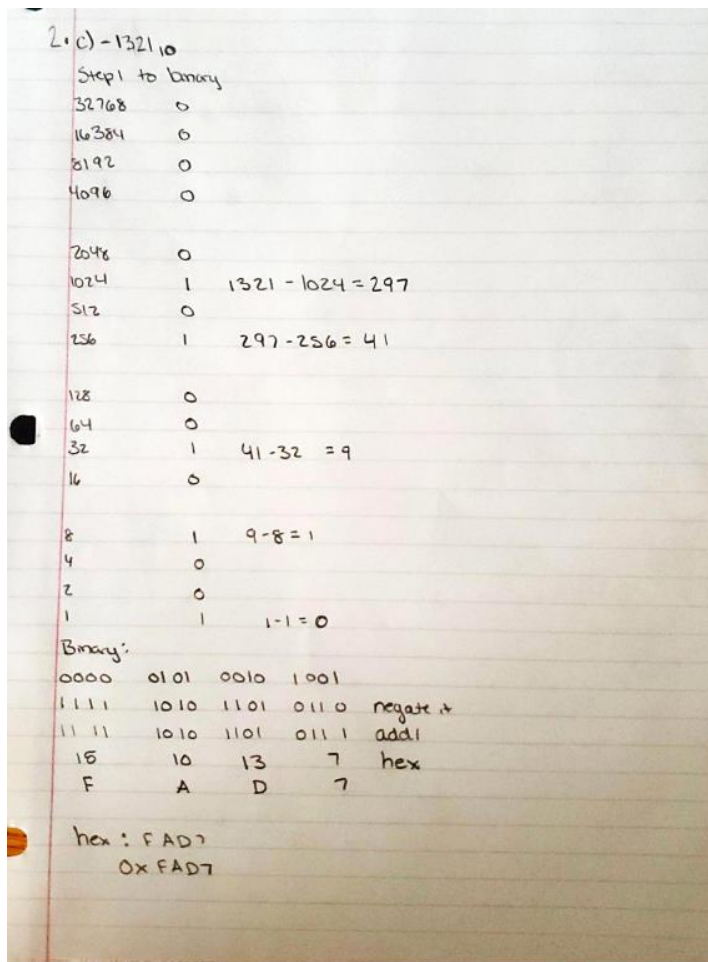 2. c) -1321 10
Step 1 to binary
32768 0
16384 0
8192 0
4096 0
2048 0
1024 1 1321 - 1024 = 297
512 0
256 1 297 - 256 = 41
128 0
64 0
32 1 41 - 32 = 9
16 0
8 1 9 - 8 = 1
4 0
2 0
1 1 1 - 1 = 0
Binary:
0000 0101 0010 1001
1111 1010 1101 0110 negate it
1111 1010 1101 0111 add 1
15 10 13 7 hex
F A D 7
hex : FAD7
0x FAD7